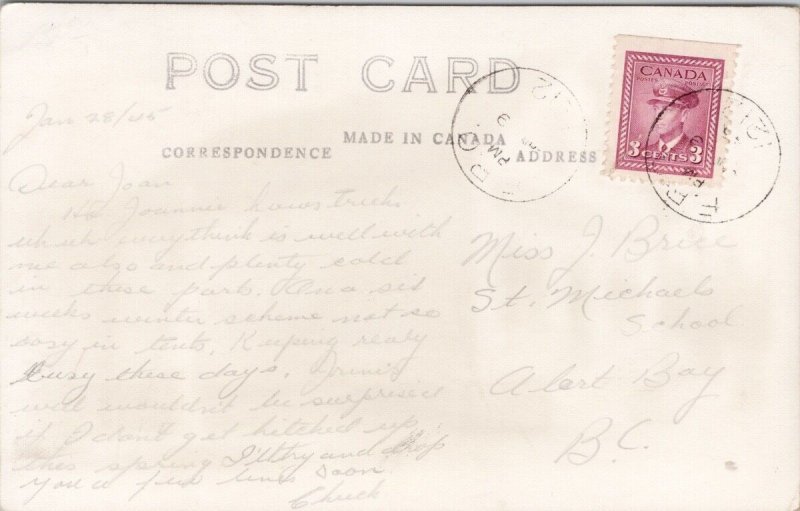 POST CARD
MADE IN CANADA
CORRESPONDENCE
ADDRESS
CANADA
POSTES POSTAGE
3 CENTS 3
F.P.O.
PM
F.P.O.
Jan 28/45
Dear Joan
Hi Joannie hows tricks
everything is well with
me also and plenty cold
in these parts. On a six
weeks winter scheme not so
cosy in tents. Keeping really
busy these days.
well wouldn't be surprised
if I don't get hitched up
this spring I'll try and drop
you a few lines soon.
Chuck
Miss J. Brice
St. Michaels
School
Alert Bay
B.C.